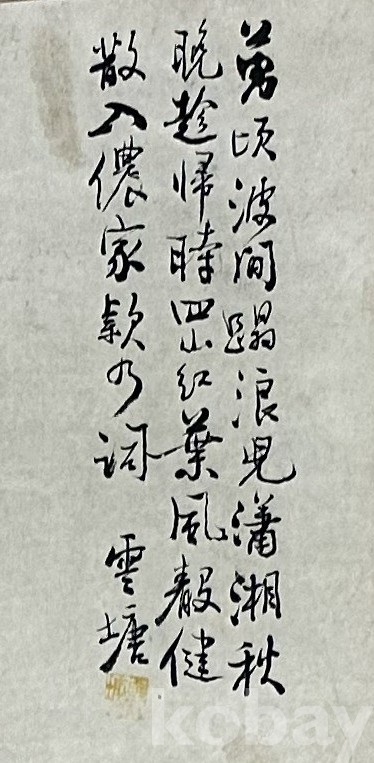 萬頃波間蹋浪兒瀟湘秋
晚趁歸時四山紅葉風聲健
散入儂家欸乃詞
雲塘
kobay